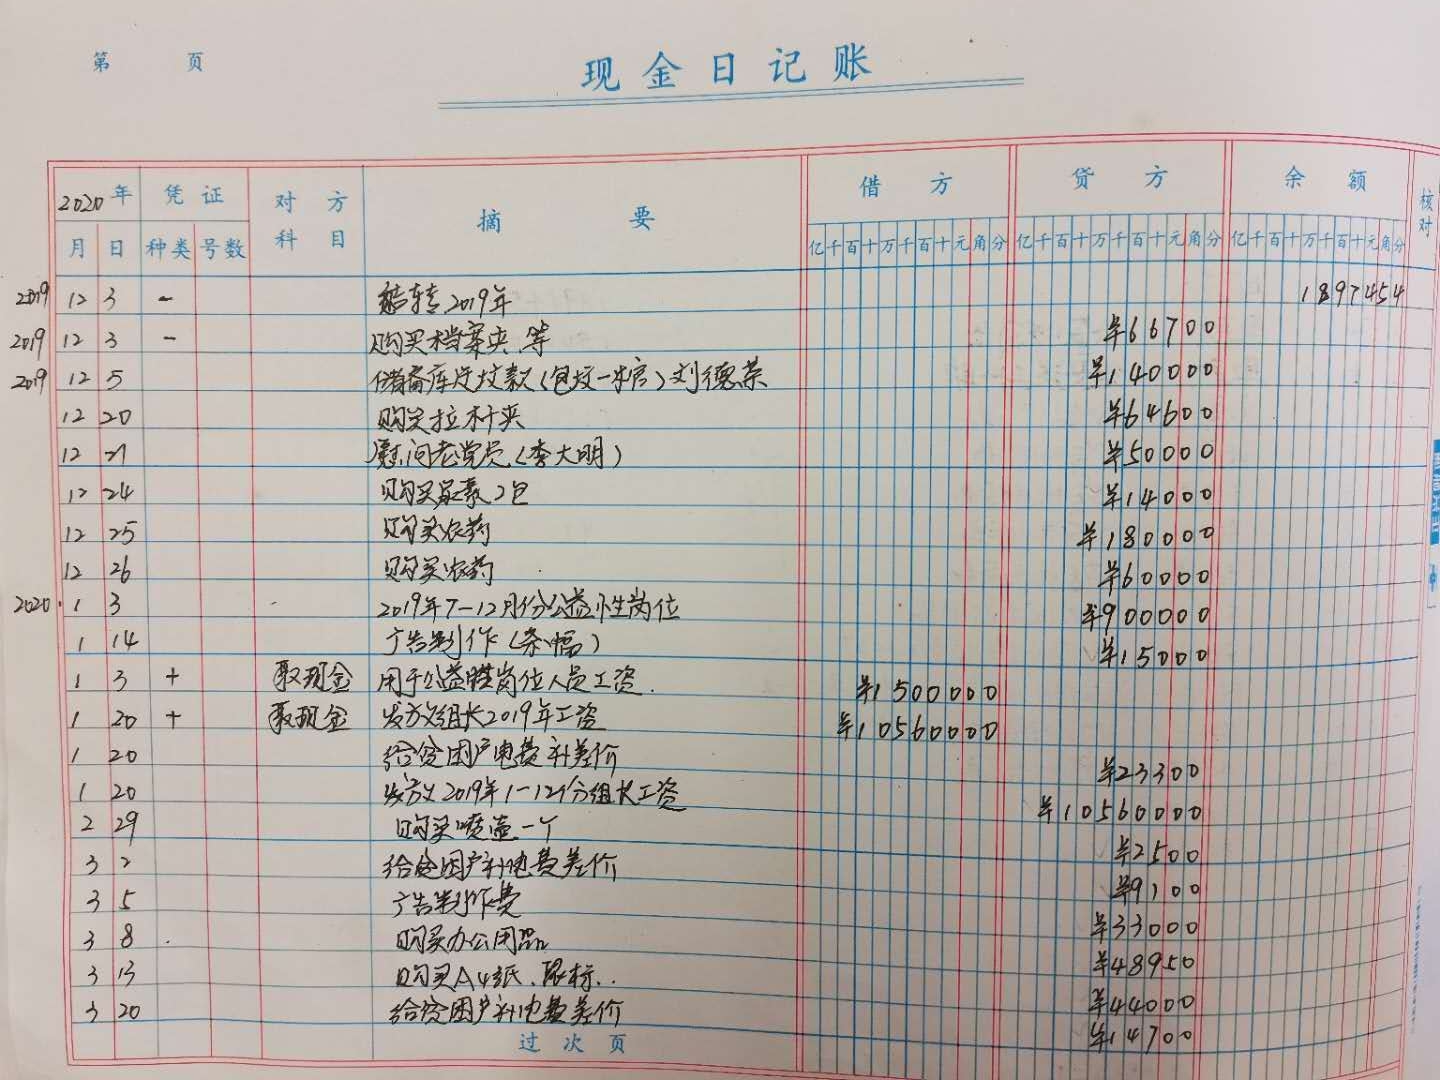 第 页
现金日记账
2020年 凭证 对方科目 摘要 借方 贷方 余额 核对
月 日 种类 号数 亿千百十万千百十元角分 亿千百十万千百十元角分 亿千百十万千百十元角分
2019 12 3 - 结转2019年 1897454
2019 12 3 - 购买档案夹.等 ¥66700
2019 12 5 (包坟一棺)刘德荣 ¥140000
12 20 购买拉杆夹 ¥64600
12 21 慰问老党员(李大明) ¥50000
12 24 2包 ¥14000
12 25 购买农药 ¥180000
12 26 购买农药 ¥60000
2020 1 3 2019年7-12月份公益性岗位 ¥900000
1 14 广告制作(条幅) ¥15000
1 3 + 取现金 用于公益性岗位人员工资. ¥1500000
1 20 + 取现金 发放组长2019年工资 ¥10560000
1 20 给贫困户电费补差价 ¥23300
1 20 发放2019年1-12份组长工资 ¥10560000
2 29 购买喷壶一个 ¥2500
3 2 给贫困户补电费差价 ¥9100
3 5 广告制作费 ¥33000
3 8 购买办公用品 ¥48950
3 13 购买A4纸.鼠标.. ¥44000
3 20 给贫困户补电费差价 ¥14700
过次页